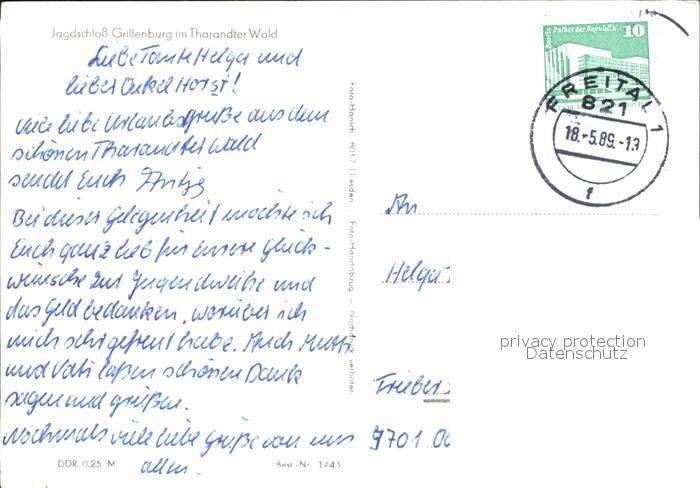 Jagdschloß Grillenburg im Tharandter Wald
Liebe Tante Helga und
lieber Onkel Horst!
viele liebe Urlaubsgrüße aus dem
schönen Tharandter Wald
sendet Euch
Bei dieser Gelegenheit möchte ich
Euch ganz lieb für Eure Glück-
wünsche zur Jugendweihe und
das Geld bedanken, worüber ich
mich sehr gefreut habe. Auch Mutti
und Vati laßen schönen Dank
sagen und grüßen.
Nochmals viele liebe Grüße von uns
allen.
DDR 0,25 M
Best.-Nr. 1443
Foto-Hanich 8017 Dresden - Foto-Handabzug - Nachdruck verboten
Berlin Palast der Republik 10
FREITAL 1
821
18.-5.89.-19
f
An
Helga
privacy protection
Datenschutz
Frieber
9701